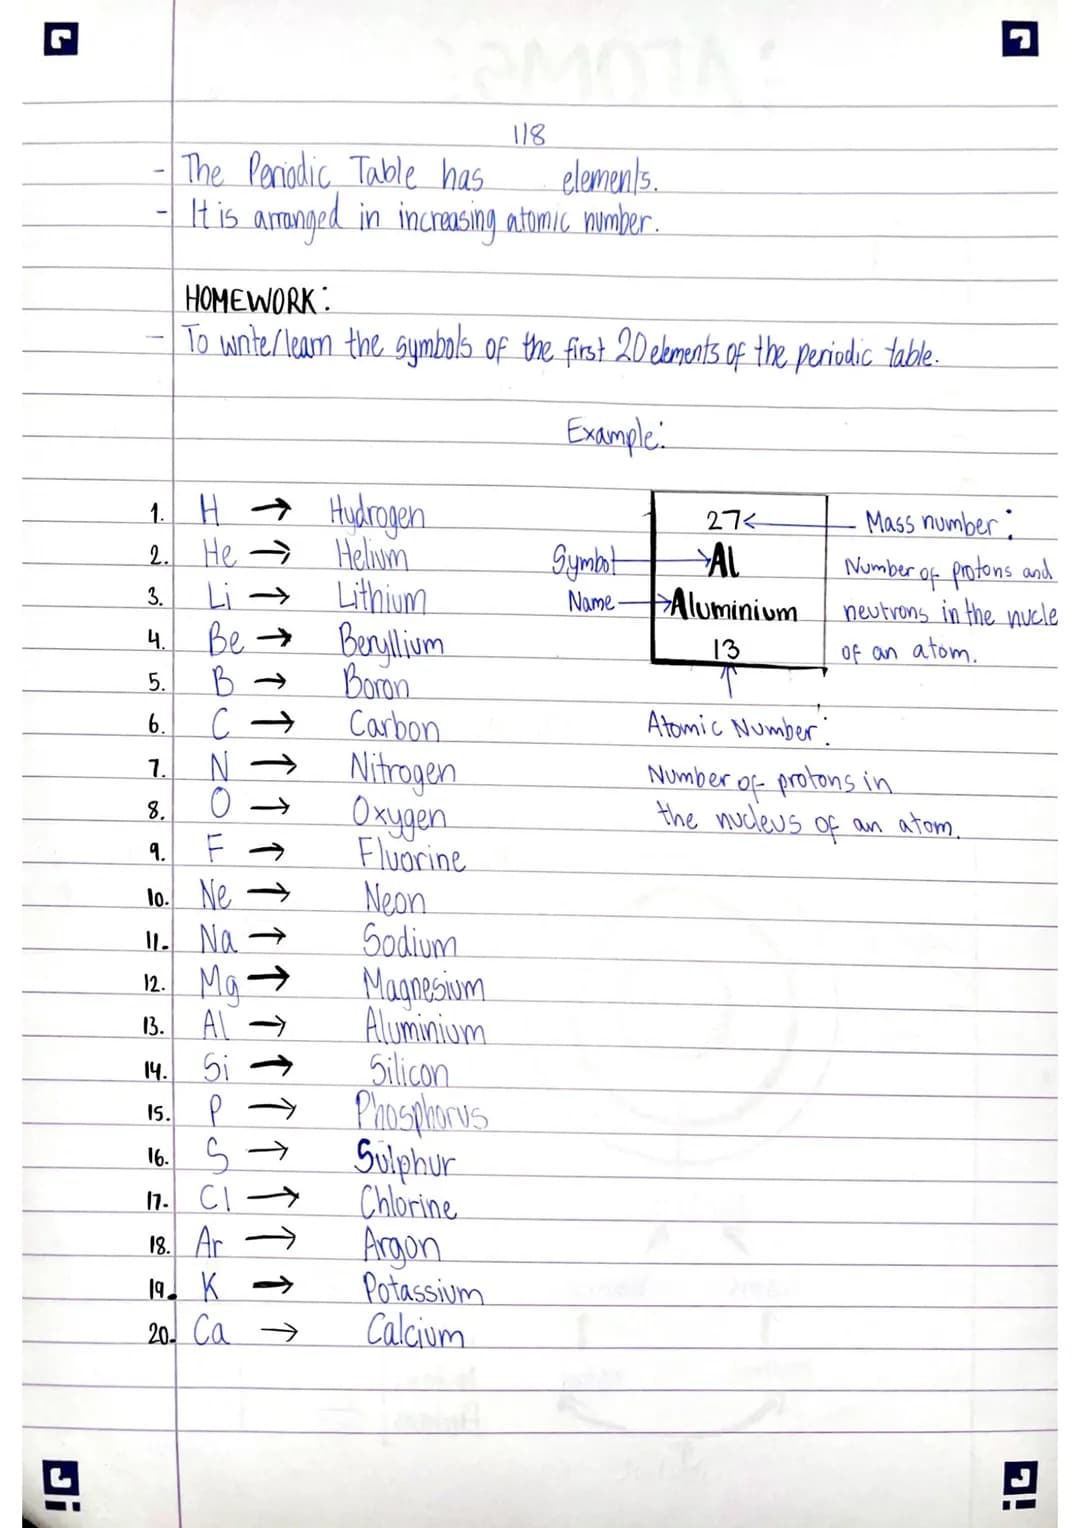 118
- The Periodic Table has elements.
- It is arranged in increasing atomic number.
HOMEWORK:
- To write/learn the symbols of the first 20 elements of the periodic table.
Example:
1. H → Hydrogen
2. He → Helium
3. Li → Lithium
4. Be → Beryllium
5. B → Boron
6. C → Carbon
7. N → Nitrogen
8. O → Oxygen
9. F → Fluorine
10. Ne → Neon
11. Na → Sodium
12. Mg → Magnesium
13. Al → Aluminium
14. Si → Silicon
15. P → Phosphorus
16. S → Sulphur
17. Cl → Chlorine
18. Ar → Argon
19. K → Potassium
20. Ca → Calcium
27 ← Mass number:
Symbol → Al
Name → Aluminium
13
Number of protons and
neutrons in the nucle
of an atom.
Atomic Number:
Number of protons in
the nucleus of an atom.